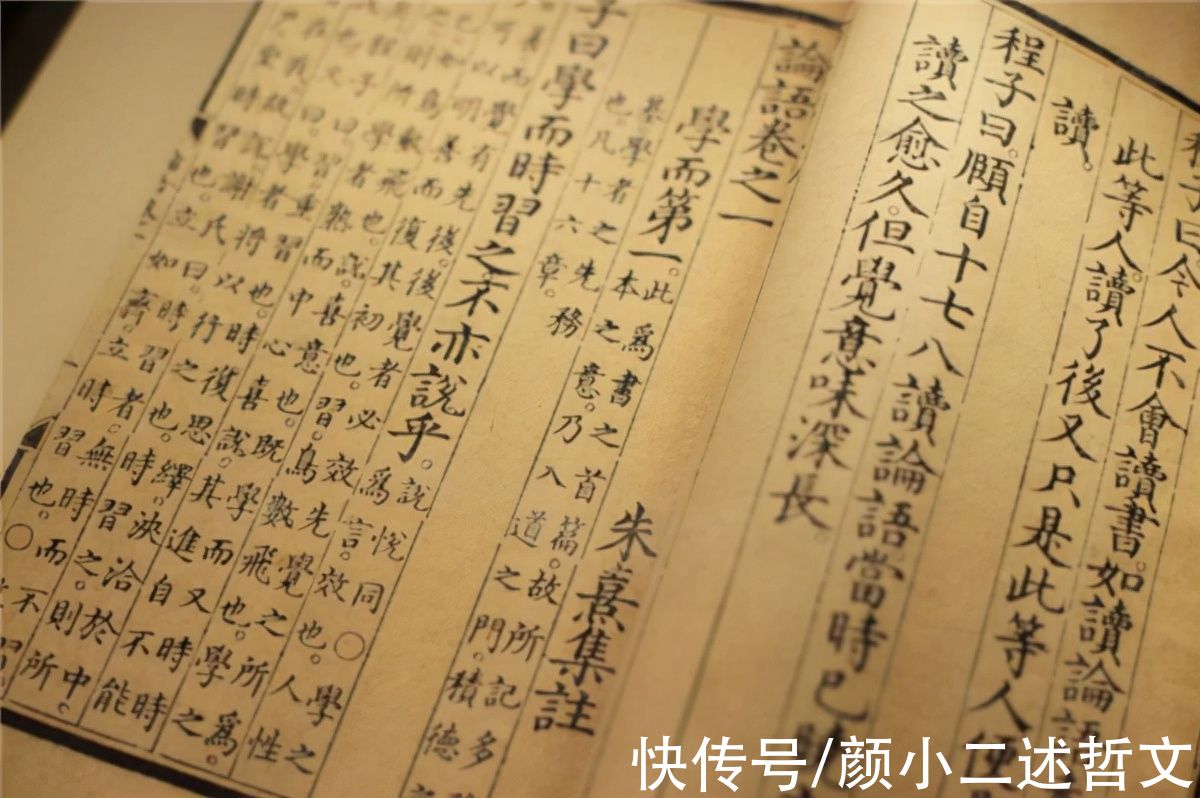 子曰今人不會讀書。如讀論語
此等人。讀了後又只是此等人便
讀。
程子曰。頤自十七八讀論語當時已曉
讀之愈久。但覺意味深長。
論語卷之一
朱熹集註
學而第一。此爲書之首篇。故所記多
本之意。乃入道之門。積德
基學者之先務
也凡十六章。
子曰學而時習之不亦說乎。說悅同○學之
爲言。效也。人性
善。而覺有先後。後覺者必效先覺之所爲。
可以明善而復其初也。習。鳥數飛也。學之
已。如鳥數飛也。說。喜意也。既學而又時時
則所學者熟。而中心喜說。其進自不能
程子曰。習。重習也。時復思繹。浹洽於中。
也又曰。學者將以行之也。時習之。則所
在我。故說。謝氏曰。時習者。無時而不習。
坐時習也。立如齊。立時習也。○
快传号/颜小二述哲文